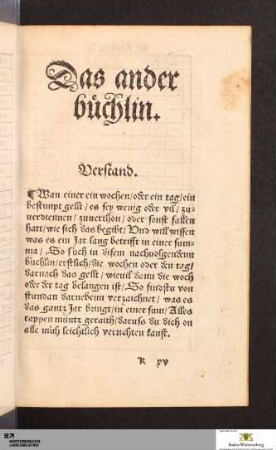 Das ander
büchlin.
Verstand.
¶Wan einer ein wochen/oder ein tag/ein
bestimpt gellt/es sey wenig oder vil/zu-
uerdiennen/zuuerthon/oder sonst fallen
hatt/wie sich das begibt/Vnd will wissen
was es ein Jar lang betrifft in einer sum-
ma/So such in disem nachuolgendenn
büchlin/erstlich/die wochen oder den tag/
darnach das gellt/wieuil dann die woch
oder der tag belangen ist/So findstu von
stundan darnebenn verzeichnet/was es
das gantz Jar bringt/in einer sum/Alles
rappen müntz gerait/darufs du dich on
alle müh leichtlich verrichten kanst.
K xv